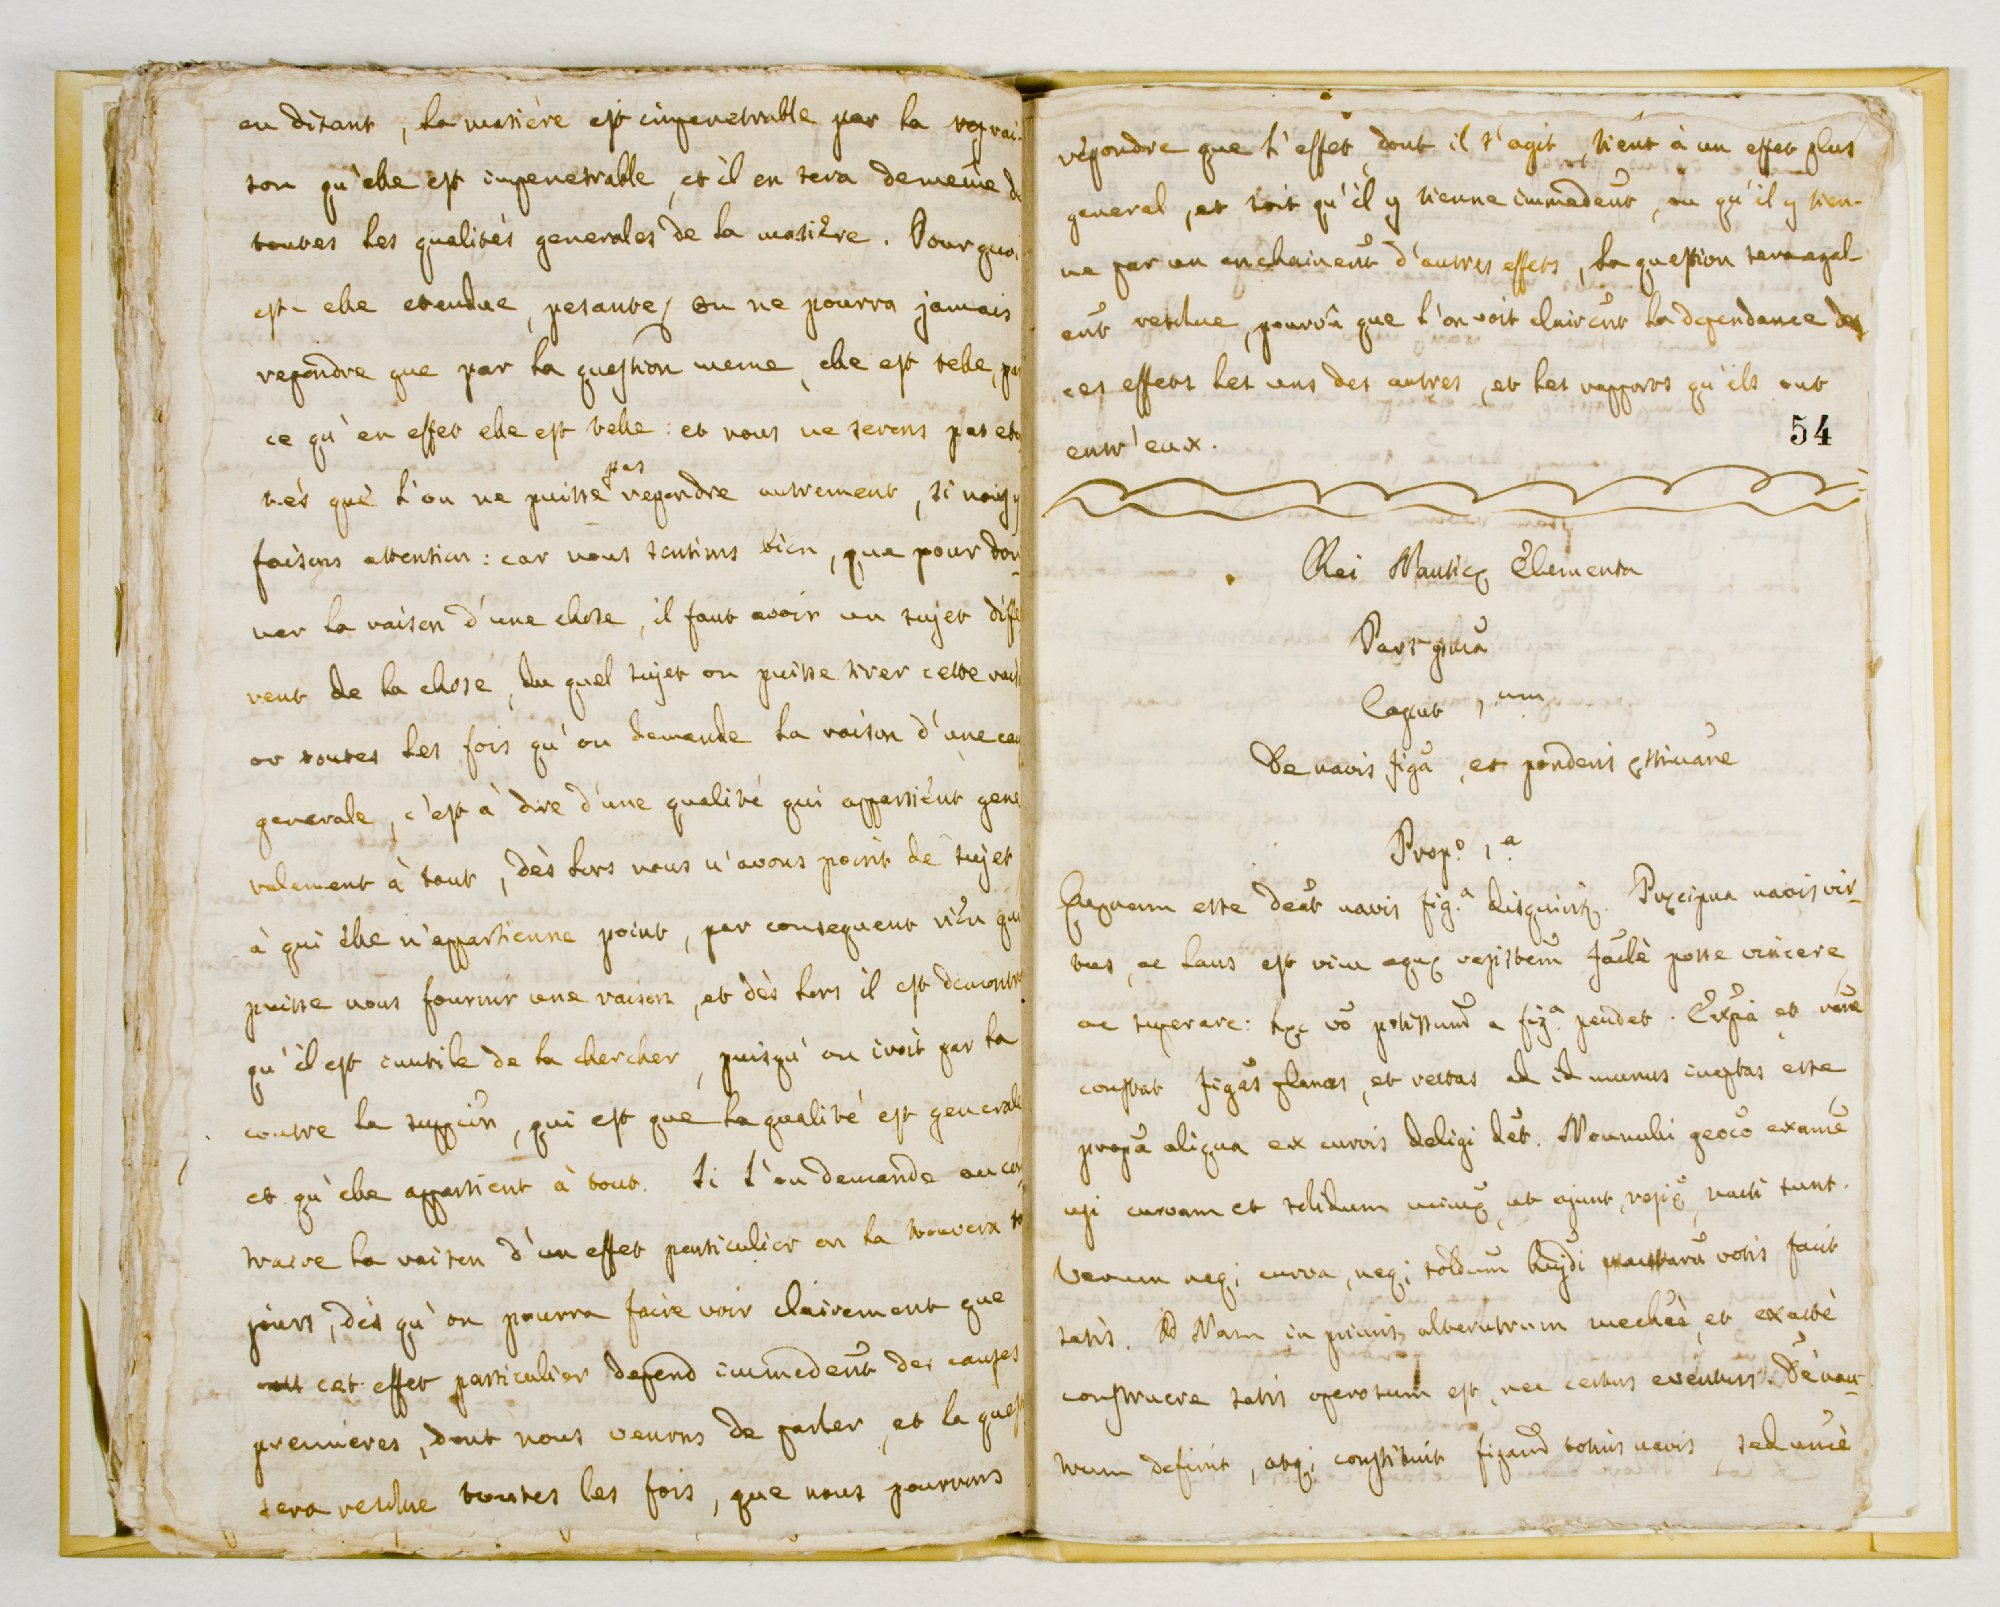 en disant, la matière est impenetrable par la
son qu'elle est impenetrable, et il en sera de meme de
toutes les qualités generales de la matière. Pourquoi
est-elle etendue, pesante, on ne pourra jamais
repondre que par la question meme, elle est telle, par
ce qu'en effet elle est telle: et nous ne serons pas
tés que l'on ne puisse pas repondre autrement, si nous y
faisons attention: car nous sentons bien, que pour don-
ner la raison d'une chose, il faut avoir un sujet diffe
rent de la chose, du quel sujet on puisse tirer cette rais
or toutes les fois qu'on demande la raison d'une cau
generale, c'est à dire d'une qualité qui appartient gene
ralement à tout, dès lors nous n'avons point de sujet
à qui elle n'appartienne point, par consequent rien qui
puisse nous fournir une raison, et dès lors il est demontré
qu'il est inutile de la chercher, puisqu'on iroit par la
contre la supp̃on, qui est que la qualité est generale
et qu'elle appartient à tout. Si l'on demande au con
traire la raison d'un effet particulier on la trouvera to
jours, dès qu'on pourra faire voir clairement que
cet effet particulier depend immedent des causes
premieres, dont nous venons de parler, et la quest
sera resolue toutes les fois, que nous pourrons
répondre que l'effet, dont il s'agit, tient à un effet plus
general, et soit qu'il y tienne immedent, ou qu'il y tien-
ne par un enchainent d'autres effets, la question sera egal-
ent resolue, pourvû que l'on voit clairent la dependance de
ces effets les uns des autres, et les rapports qu'ils ont
entr'eux.
54
Rei Nauticæ Elementa
Pars
Caput 1um
De navis figa, et ponderis
Propo 1a
esse deat navis fig.a Præcipua navis vir-
tus, ac laus est vim aquæ facilè posse vincere,
ac superare: hæc vo a fig.a pendet. et
constat figas planas, et rectas ad id munus ineptas esse,
aliqua ex curvis deligi det. Nonnulli geoco
curvam et solidum ut ajunt, nacti sunt.
Verum neq; curva, neq; votis facit
satis. Nam in primis alterutrum et exactè
construere satis operosum est, nec certus eventus. Deneu-
trum definit, atq; constituit totius navis, sed